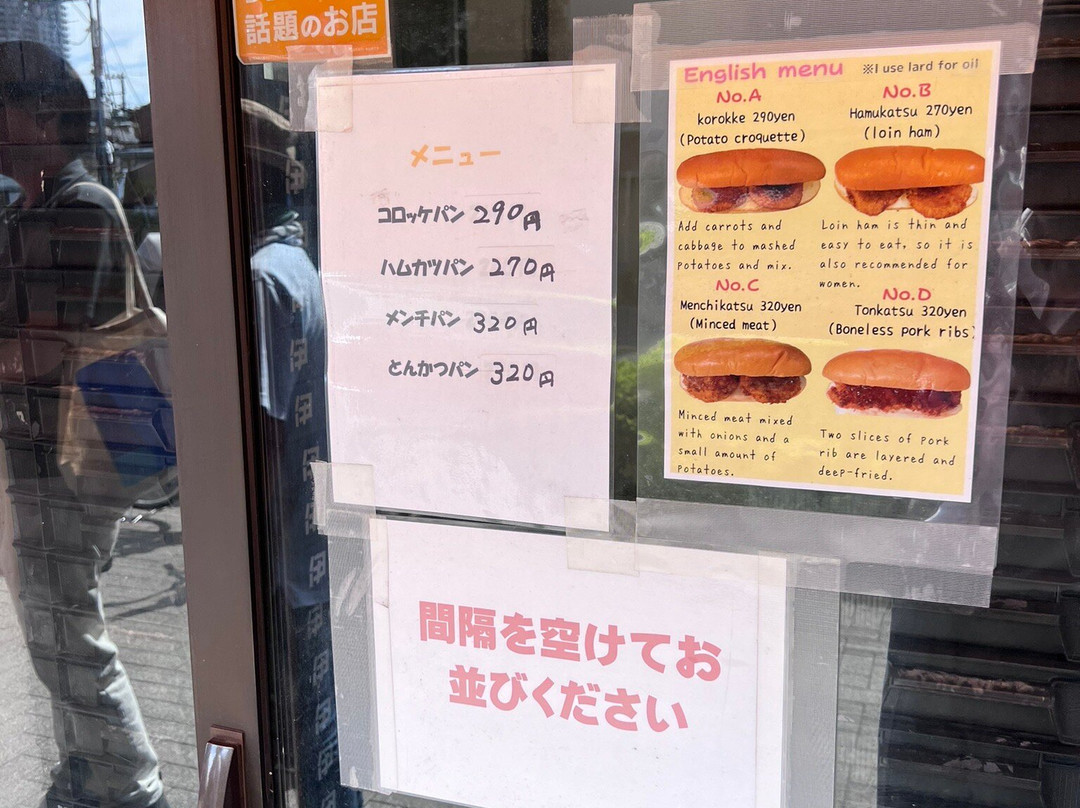 話題のお店
メニュー
コロッケパン 290円
ハムカツパン 270円
メンチパン 320円
とんかつパン 320円
English menu ※I use lard for oil
No.A
korokke 290yen
(Potato croquette)
Add carrots and
cabbage to mashed
potatoes and mix.
No.B
Hamukatsu 270yen
(loin ham)
Loin ham is thin and
easy to eat, so it is
also recommended for
women.
No.C
Menchikatsu 320yen
(Minced meat)
Minced meat mixed
with onions and a
small amount of
potatoes.
No.D
Tonkatsu 320yen
(Boneless pork ribs)
Two slices of pork
rib are layered and
deep-fried.
間隔を空けてお
並びください